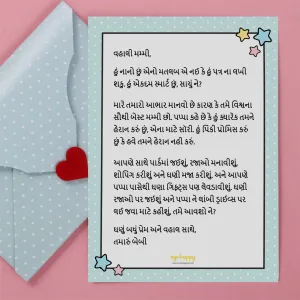 વહાલી મમ્મી,
હું નાનો છું એનો મતલબ એ નઈ કે હું પત્ર ના લખી
શકુ. હું એકદમ સ્માર્ટ છું, સાચું ને?
મારે તમારો આભાર માનવો છે કારણ કે તમે વિશ્વના
સૌથી બેસ્ટ મમ્મી છો. પપ્પા કહે છે કે હું ક્યારેક તમને
હેરાન કરું છું, એના માટે સોરી. હું પિંકી પ્રોમિસ કરું
છું કે હવે તમને હેરાન નહી કરું.
આપણે સાથે પાર્કમાં જઈશું, રજાઓ મનાવીશું,
શોપિંગ કરીશું અને ઘણી મજા કરીશું. અને આપણે
પપ્પા પાસેથી ઘણા ગિફ્ટ્સ પણ લેવડાવીશું. ઘણી
રજાઓ પર જઈશું અને પપ્પા ને લાંબી ડ્રાઈવ્સ પર
લઇ જવા માટે કહીશું, તમે આવશો ને?
ઘણું બધું પ્રેમ અને વહાલ સાથે,
તમારું બેબી